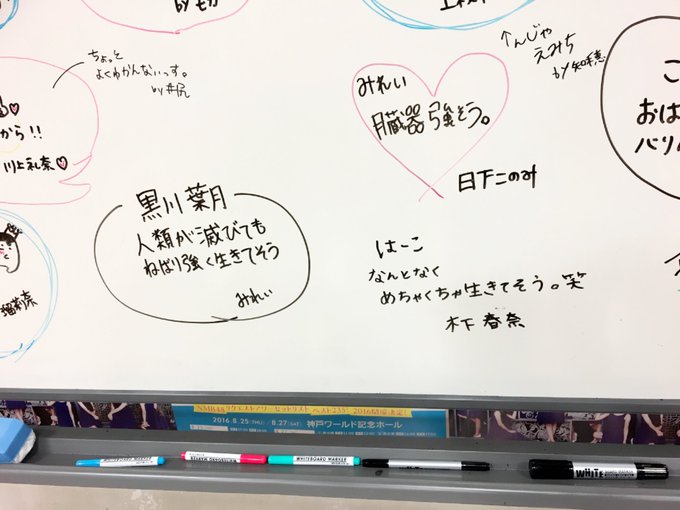 by モカ
ちょっと
よくわかんないっす。
by 井尻
から!!
川上礼奈♡
瑠莉奈
黒川葉月
人類が滅びても
ねばり強く生きてそう
みれい
みれい
臓器強そう。
日下このみ
↑んじゃ
えみち
by 知恵
こ
おは
バリ
はーこ
なんとなく
めちゃくちゃ生きてそう。笑
木下春奈
NMB48リクエストアワー セットリスト ベスト235 2016
2016.8.25(THU)/8.27(SAT) 神戸ワールド記念ホール
WHITEBOARD MARKER
WHITEBOARD MARKER
WHITE
WHITE